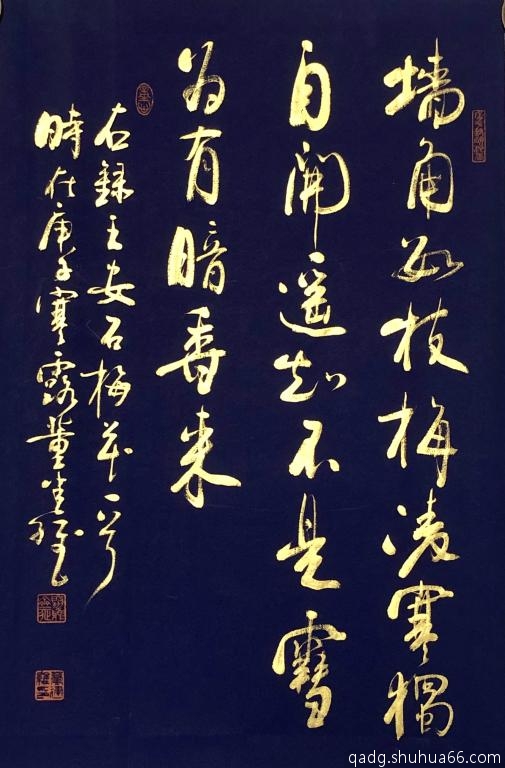 墙角数枝梅凌寒獨
自開遥知不是雪
为有暗香来
右録王安石梅花一首
時在庚子寒露董
qadg.shuhua66.com